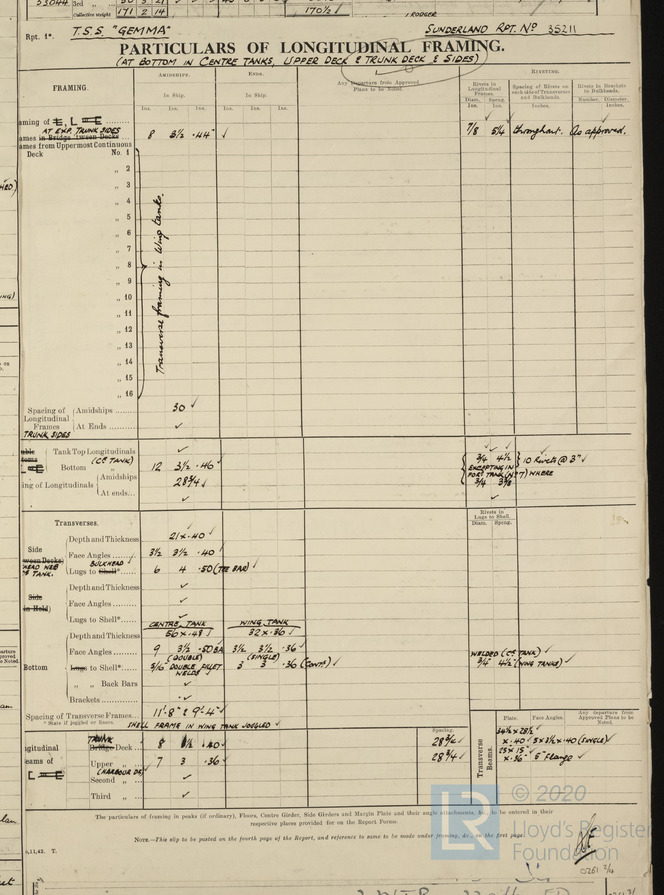 Collective weight 171 2 14 170½
Rpt. 1*. T.S.S "GEMMA" SUNDERLAND RPT. Nº 35211
PARTICULARS OF LONGITUDINAL FRAMING.
(AT BOTTOM IN CENTRE TANKS, UPPER DECK & TRUNK DECK & SIDES)
FRAMING. AMIDSHIPS. ENDS. RIVETING.
In Ship. In Ship. Any Departure from Approved Plans to be Noted.
Rivets in Longitudinal Frames. Spacing of Rivets on each side of Transverses and Bulkheads. Rivets in Brackets in Bulkheads.
Ins. Ins. Ins. Ins. Ins. Ins. Diam. Ins. Spcng. Ins. Inches. Number. Diameter. Inches.
AT EXP. TRUNK SIDES
in Bridge 'tween Decks 8 3½ .44 ✓ 7/8 5¼ throughout. As approved.
ames from Uppermost Continuous
Deck No. 1
„ 2
„ 3
„ 4
„ 5
„ 6
„ 7
„ 8
„ 9
„ 10
„ 11
„ 12
„ 13
„ 14
„ 15
„ 16
Transverse framing in Wing tanks.
Spacing of Longitudinal Frames Amidships 30 ✓
At Ends ✓
TRUNK SIDES
Tank Top Longitudinals ✓
(Cᴿ TANK)
Bottom „ 12 3½ .46 ✓ 3/4 4½ 10 Rivets @ 3" ✓
EXCEPTING IN
ng of Longitudinals Amidships 28¾ ✓ 3/4 3⅜
At ends ✓
Transverses. Rivets in Lugs to Shell.
Diam. Spcng.
Depth and Thickness 21 x .40 ✓
Side Face Angles 3½ 3½ .40 ✓
BULKHEAD
Lugs to Shell* 6 4 .50 (TEE BAR) ✓
Depth and Thickness ✓
Side in Hold) Face Angles ✓
Lugs to Shell* ✓
CENTRE TANK WING TANK
Depth and Thickness 56 x .48 ✓ 32 x .36 ✓
Face Angles 9 3½ .50 BA 3½ 3½ .36 ✓ WELDED (Cᴿ TANK) ✓
(DOUBLE) (SINGLE)
Bottom Lugs to Shell* 5/16" DOUBLE FILLET WELDS ✓ 3 3 .36 (CONT⁵) ✓ 3/4" 4½" (WING TANKS) ✓
„ „ Back Bars ✓
Brackets ✓
Spacing of Transverse Frames 11'-8" & 9'-4" ✓
* State if joggled or liners. SHELL FRAME IN WING TANK JOGGLED ✓
Spacing. Plate. Face Angles. Any departure from Approved Plans to be Noted.
TRUNK
ongitudinal Bridge Deck 8 3½ .40 ✓ 28¾ ✓
eams of Upper „ 7 3 .36 ✓ 28¾ ✓
(HARBOUR DK)
Second „ ✓
Third „ ✓
Transverse Beams.
34½ x 28½
x .40 ✓ 5 x 3½ x .40 (SINGLE) ✓
25 x 15
x .36 ✓ 5" Flange ✓
The particulars of framing in peaks (if ordinary), Floors, Centre Girder, Side Girders and Margin Plate and their angle attachments, &c., to be entered in their
respective places provided for on the Report Forms.
NOTE.—This slip to be posted on the fourth page of the Report, and reference to same to be made under framing, &c., on the first page.
6,11,42. T.
© 2020
Lloyd's Register
Foundation
0251 2/4